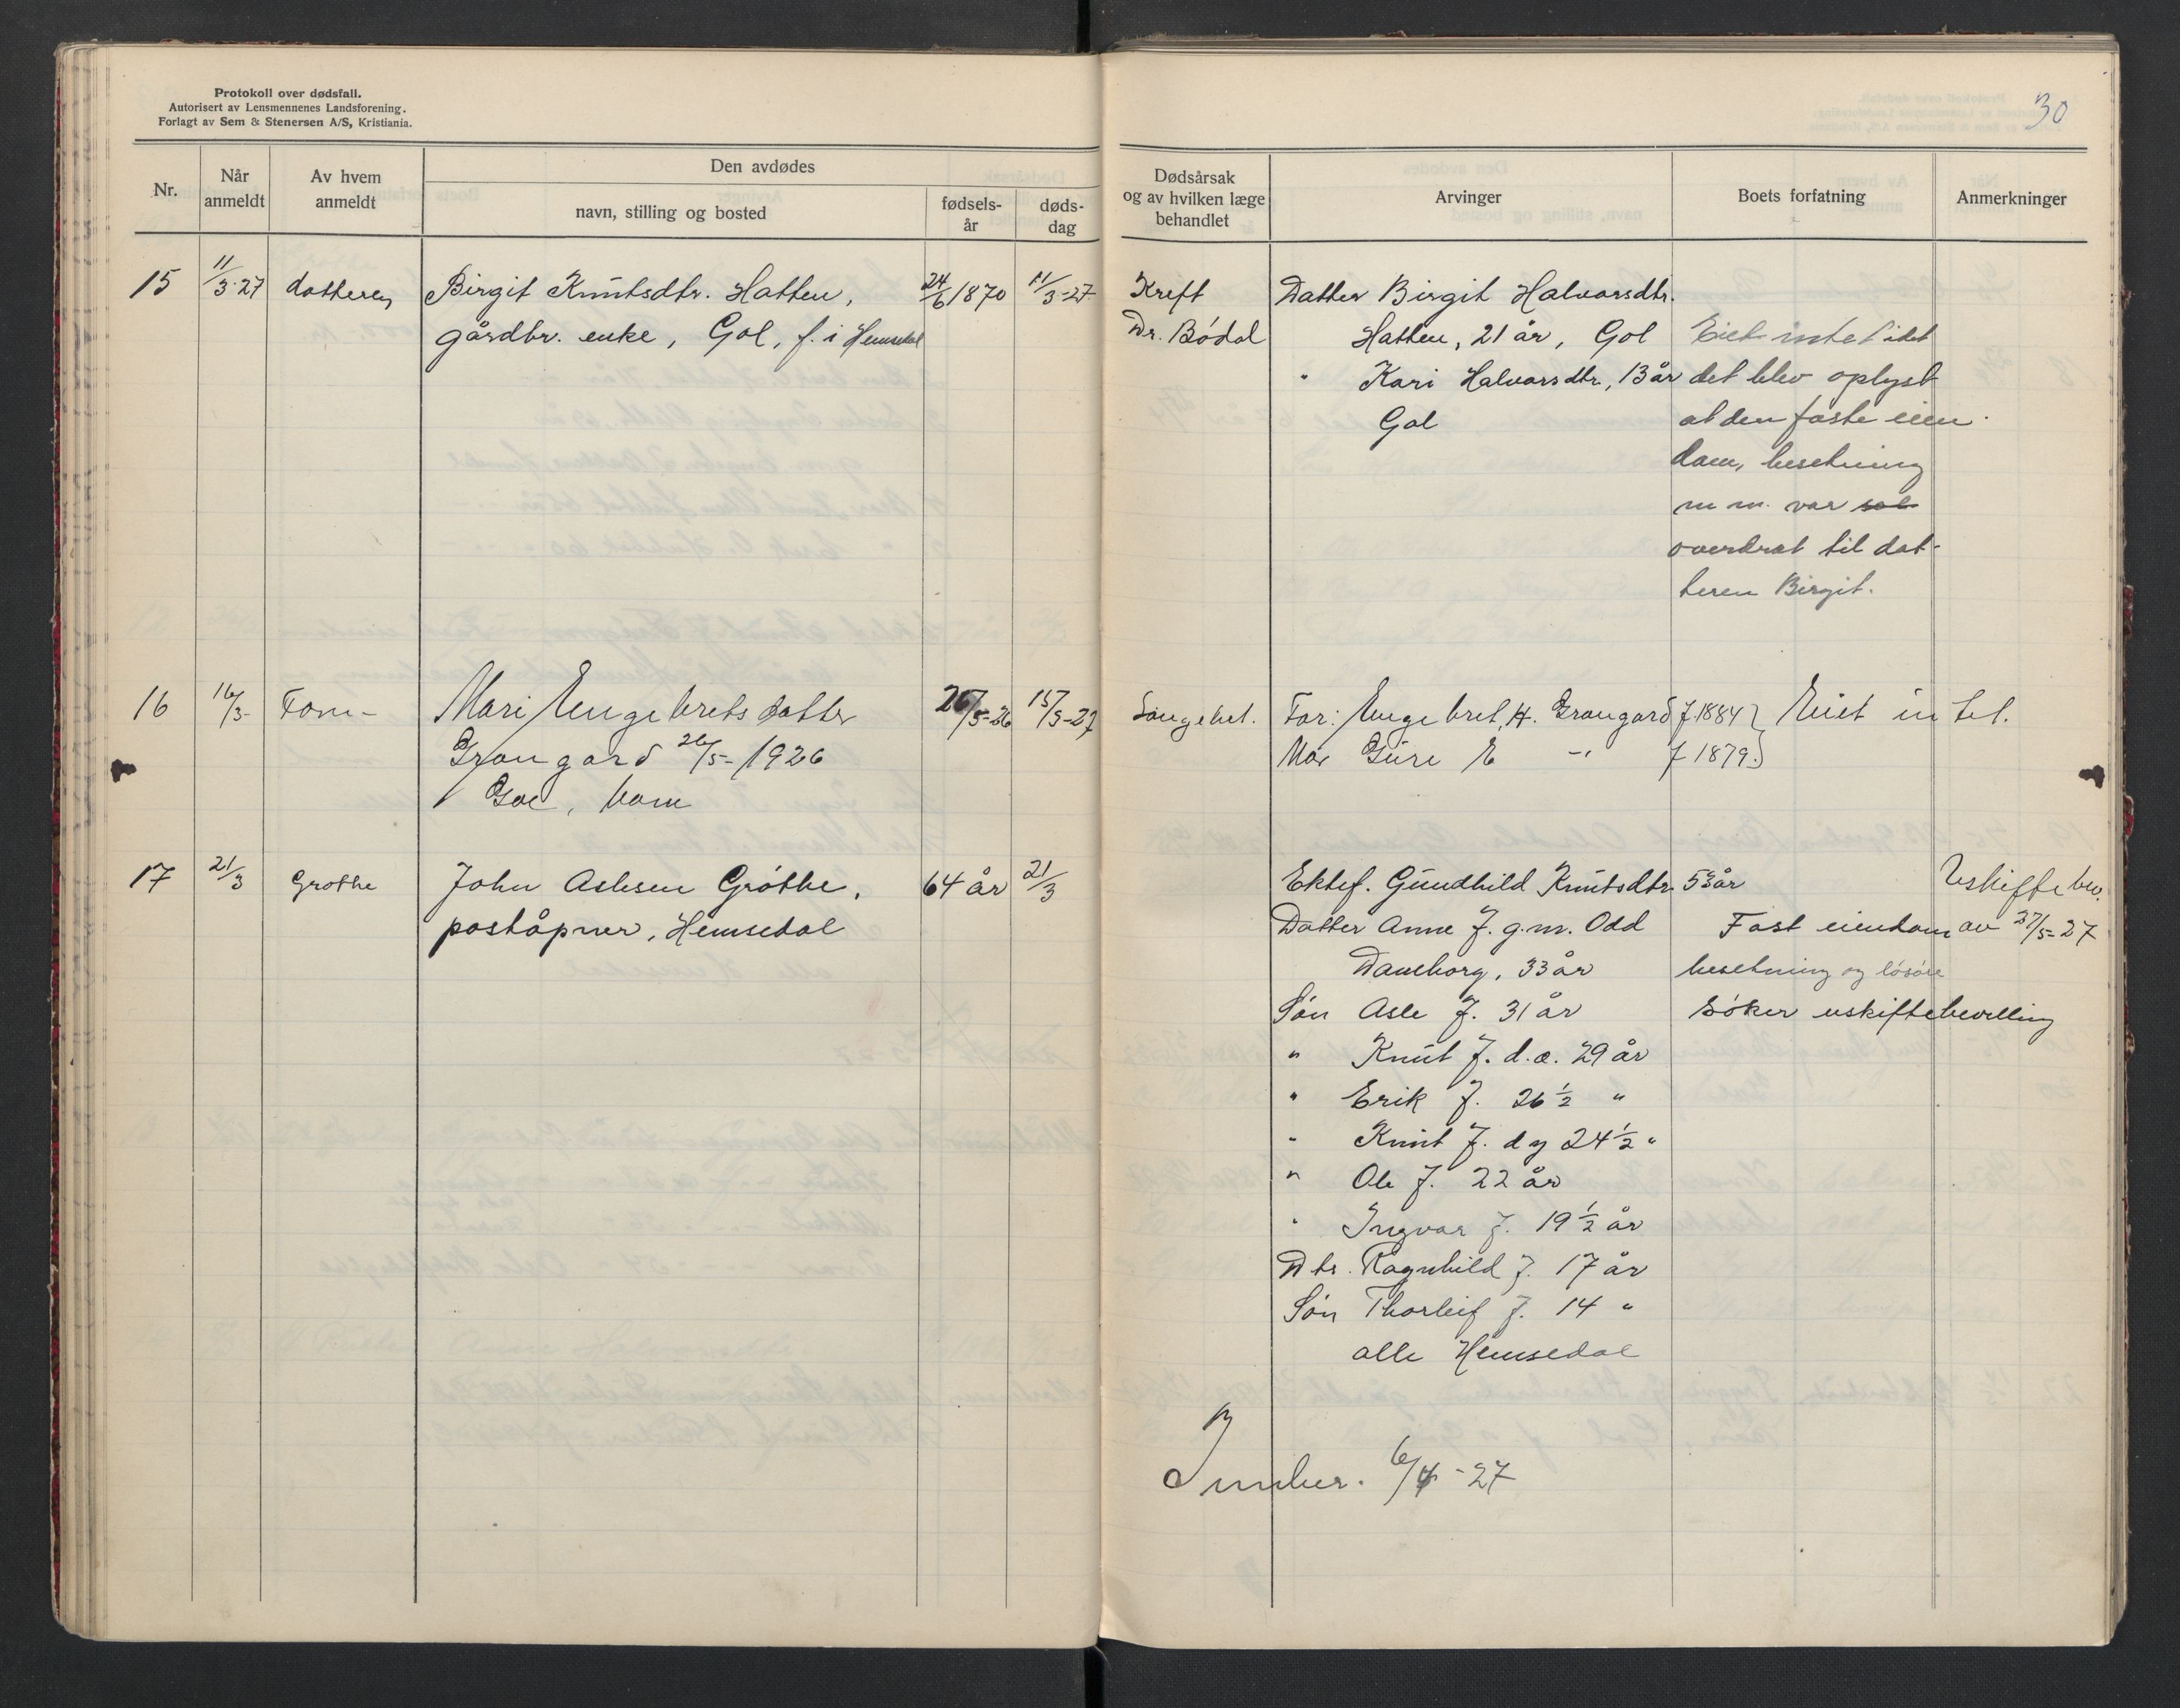 Protokoll over dødsfall.
Autorisert av Lensmennenes Landsforening.
Forlagt av Sem & Stenersen A/S, Kristiania.
30
Nr.
Når anmeldt
Av hvem anmeldt
Den avdødes
navn, stilling og bosted
fødsels-år
døds-dag
Dødsårsak og av hvilken læge behandlet
Arvinger
Boets forfatning
Anmerkninger
15 11/3-27 datteren Birgit Knutsdtr. Hatten, 24/6 1870 11/3-27 Kreft Datter Birgit Halvorsdtr.
gårdbr. enke, Gol, f. i Hemsedal Dr. Bödal Hatten, 21 år, Gol Eiet intet idet
" Kari Halvorsdtr, 13 år det blev oplyst
Gol at den faste eien-
dom, besetning
m m. var sol
overdrat til dat-
teren Birgit.
16 16/3- Faren- Mari Engebretsdatter 26/5-26 15/3-27 Sengebet. Far: Engebret H. Grangard f 1884 } Eiet intet.
Grangard 26/5-1926 Mor Guri E -" f 1879. }
Gol, barn
17 21/3 Grøthe John Aslesen Gröthe, 64 år 21/3 Ektef. Gundhild Knutsdtr. 53 år Uskiftebev.
poståpner, Hemsedal Datter Anne J. g.m. Odd Fast eiendom av 27/5-27
Daneborg, 33 år besetning og lösöre
Sön Asle J. 31 år söker uskiftebevilling
" Knut J. d.e. 29 år
" Erik J. 26 ½ "
" Knut J. d y 24 ½ "
" Ole J. 22 år
" Ingvar J. 19 ½ år
Dtr. Ragnhild J. 17 år
Sön Thorleif J. 14 "
alle Hemsedal
6/4-27